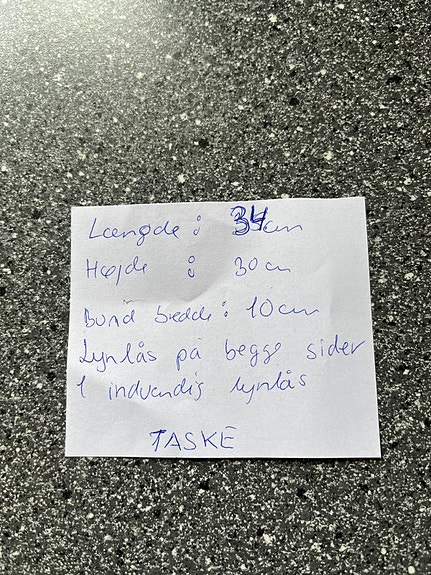 Længde : 34cm
Højde : 30cm
Bund bredde : 10cm
Lynlås på begge sider
1 indvendig lynlås
TASKE